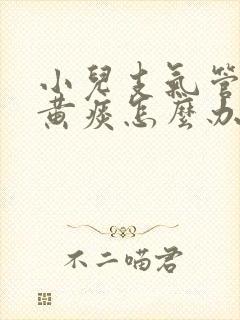 小兒支氣管
黃痰怎麼办
不二喵君